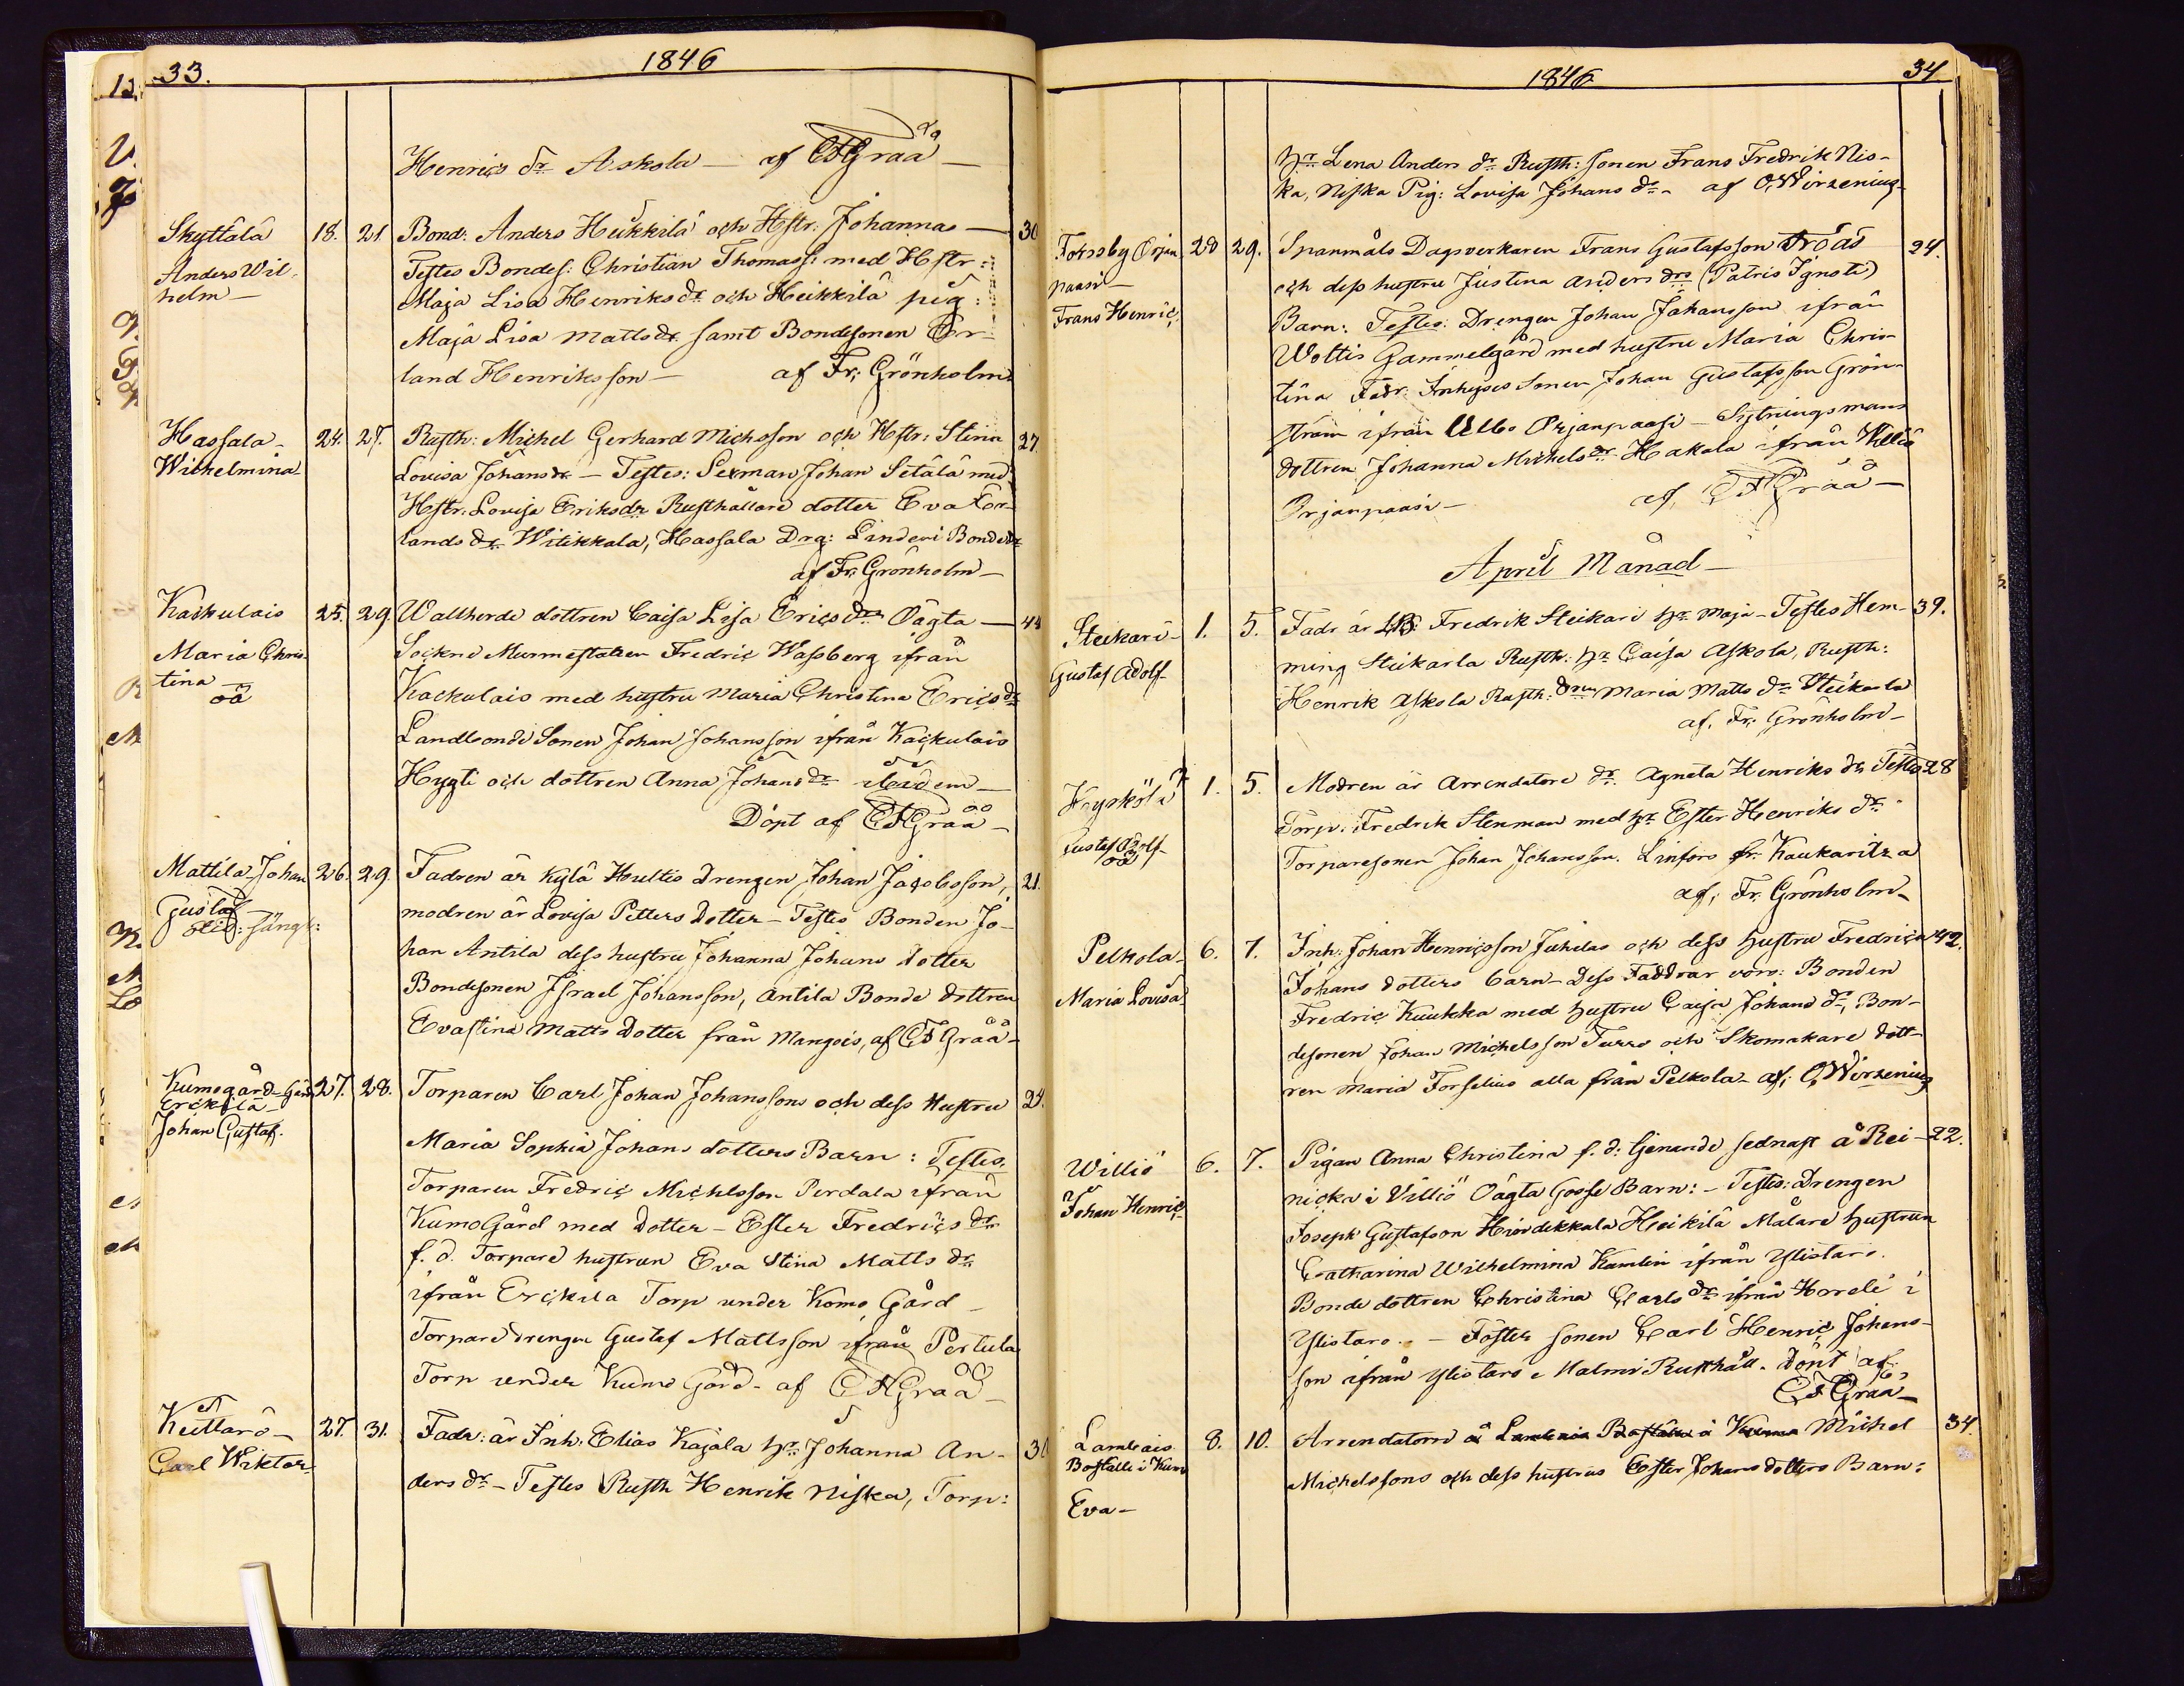 33.
1846
Henrics dr Askola — af CFGraa —
Skyttälä
Anders Wil-
helm —
18. 21. Bond: Anders Heikkilä och Hstr: Johannas — 30
Testes Bondes: Christian Thomass: med Hstr:
Maja Lisa Henriksdr och Heikkilä pig:
Maja Lisa Mattsdr samt Bondesonen Er-
land Henriksson — af Fr: Grönholm
Hassala —
Wilhelmina
24. 27. Rusth: Michel Gerhard Michsson och Hstr: Stina 27.
Lovisa Johansdr — Testes: Sexman Johan Setälä med
Hstr: Lovisa Eriksdr Rusthållare dotter Eva Er-
lands dr Witikkala, Hassala Drg: Linderi Bondedr
af Fr: Grönholm —
Kackulais
Maria Chris-
tina —
oä
25. 29. Wallherde dottren Caisa Lisa Erics dr Oägta — 44
Sockne Murmestaren Fredric Wassberg ifrån
Kackulais med hustru Maria Christina Erics dr
Landbonde Sonen Johan Johansson ifrån Kackulais
Hygti och dottren Anna Johans dr ibidem —
Döpt af CFGraa —
Mattila Johan
Gustaf
26. 29. Fadren är Kylä Hultis Drengen Johan Jacobsson, 21.
modren är Lovisa Petters Dotter — Testes Bonden Jo-
han Antila dess hustru Johanna Johans Dotter
Bondesonen Israel Johansson, Antila Bonde dottren
Evastina Matts Dotter från Mangois, af CFGraa —
Kumogård Gård
Erckila —
Johan Gustaf.
27. 28. Torparen Carl Johan Johanssons och dess Hustru 24.
Maria Sophia Johans dotters Barn: Testes.
Torparen Fredric Michlsson Perdala ifrån
KumoGård med Dotter — Ester Fredrics dr
f. d. Torpare hustrun Eva Stina Matts dr
ifrån Erckila Torp under Komo Gård —
Torpare drengen Gustaf Mattsson ifrån Pertula
Torp under Kumo Gård — af CFGraa —
Kuttarö —
Carl Wiktor
27. 31. Fadr: är Inh: Elias Kajala hr Johanna An-
ders dr — Testes Rusth Henrik Niska, Torp:
1846
34.
hr Lena Anders dr Rusth: Sonen Frans Fredrik Nis-
ka, Niska Pig: Lovisa Johans dr — af O,Wirzenius
Forssby Orjan
paasi —
Frans Henric
28 29. Spanmåls Dagsverkaren Frans Gustafsson Troas 24.
och dess hustru Justina Anders drs (Patris Ignoti)
Barn: Testes: Drengen Johan Johansson ifrån
Woltis Gammelgård med hustru Maria Chris-
tina Fadr: Inhyses Sonen Johan Gustafsson Grön-
ström ifrån Ulbo Orjanpaasi — Sytningsmans
dottren Johanna Michels dr Hakala ifrån Williö
Orjanpaasi — af, CFGraa —
April Månad —
Steikari —
Gustaf Adolf
1. 5. Fadr är LB: Fredrik Steikari hr Maja — Testes Hem- 39.
ming Steikarla Rusth: hr Caisa Askola, Rusth:
Henrik Askola Rusth: Maria Matts dr Steikarla
af, Fr: Grönholm —
Gustaf Adolf
oä
1. 5. Modren är Arrendators dr Agneta Henriks dr Testes 28
Torp: Fredrik Stenman med hr Ester Henriks dr
Torparesonen Johan Johansson. Linfors fr: Kaukaritza
af, Fr: Grönholm —
Pelkola —
Maria Lovisa
6. 7. Inh: Johan Henricsson Juhilas och dess hustru Fredrica 42.
Johans dotters barn — Dess Faddrar voro: Bonden
Fredric Kuukka med hustru Caisa Johans dr, Bon-
desonen Johan Michelsson Turro och Skomakare dott-
ren Maria Forselius alla från Pelkola — af, O,Wirzenius
Williö
Johan Henric
6. 7. Pigan Anna Christina f. d: Genande sednast å Rei- 22.
nicka i Villiö Oägta Gosse Barn: — Testes: Drengen
Joseph Gustafson Hiördikkala Heikilä Målare hustrun
Catharina Wilhelmina Kamlin ifrån Ylistaro.
Bonde dottren Christina Carls dr ifrån Horeli i
Ylistaro. — Foster sonen Carl Henric Johans-
son ifrån Ylistaro Malmi Rusthåll. Döpt af
CFGraa —
Lambais
Boställe i Kumo
Eva —
8. 10. Arrendatorn å Lambais Boställe i Kumo Michel 34.
Michelssons och dess hustrus Ester Johans dotters Barn: